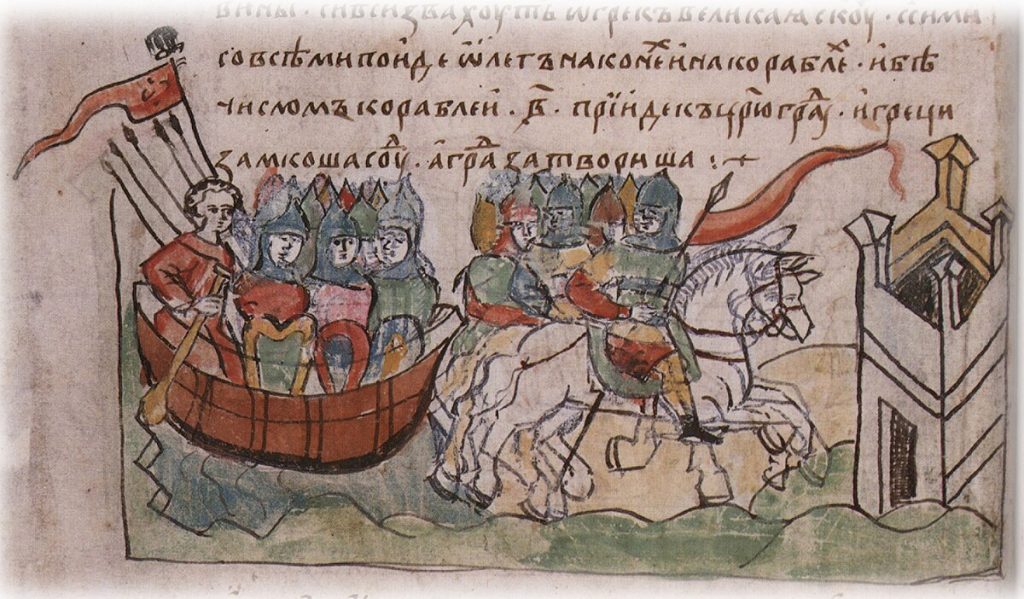 вины · си вси звахоуть ѿ грекъ великаꙗ скоу · с сими
со всѣми поиде ѡлегъ на конеⷯ и на кораблеⷯ · и бѣ
числомъ кораблей · в҃ · прїиде къ црю граⷣ · и греци
замкоша соуⷣ · а граⷣ затвориша :~